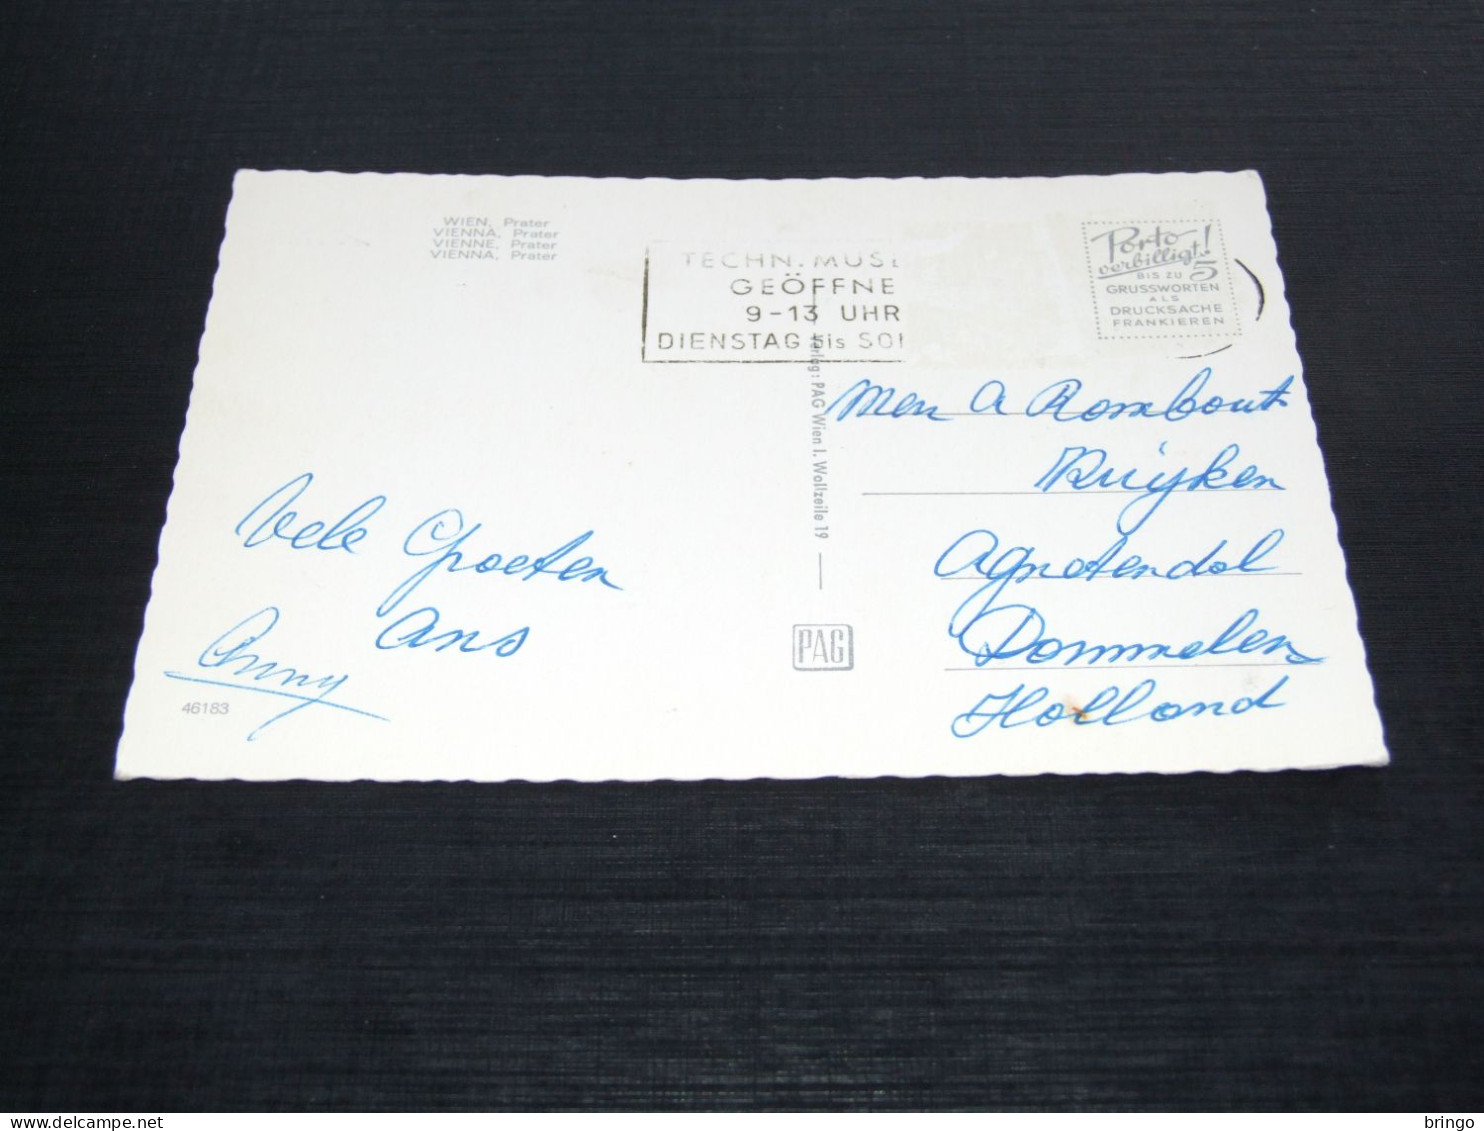 WIEN, Prater
VIENNA, Prater
VIENNE, Prater
VIENNA, Prater
TECHN. MUSE
GEÖFFNE
9-13 UHR
DIENSTAG bis SO
Porto
verbilligt!
BIS ZU 5
GRUSSWORTEN
ALS
DRUCKSACHE
FRANKIEREN
Verlag: PAG Wien I. Wollzeile 19
PAG
Vele Groeten
Ans
Anny
46183
A Rombout
Kuijken
Dommelen
Holland
delcampe.net
bringo